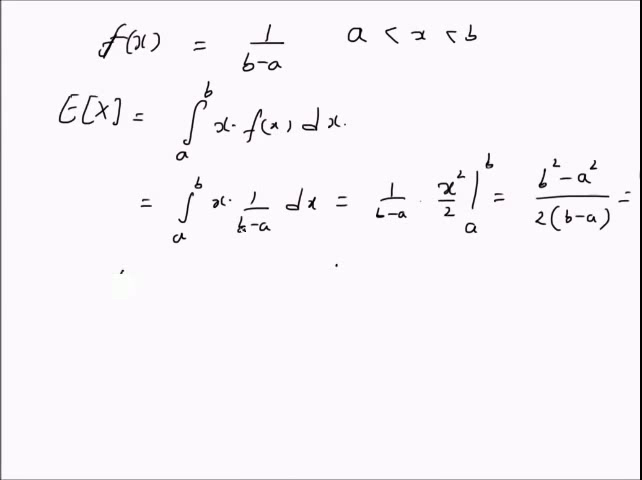 f(x) = 1/(b-a) a < x < b
E[X] = ∫_a^b x · f(x) dx.
= ∫_a^b x · 1/(b-a) dx = 1/(b-a) · x²/2 |_a^b = (b² - a²)/(2(b-a)) =